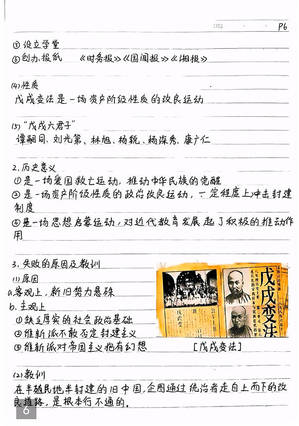 P6
③设立学堂
④创办报纸 《时务报》《国闻报》《湘报》
(4)性质
戊戌变法是一场资产阶级性质的改良运动
(5)"戊戌六君子"
谭嗣同、刘光第、林旭、杨锐、杨深秀、康广仁
2.历史意义
①是一场爱国救亡运动,推动中华民族的觉醒
②是一场资产阶级性质的政治改良运动,一定程度上冲击封建
制度
③是一场思想启蒙运动,对近代教育发展起了积极的推动作
用
3.失败的原因及教训
(1)原因
a.客观上,新旧势力悬殊
b.主观上
①缺乏厚实的社会政治基础
②维新派不敢否定封建主义
③维新派对帝国主义抱有幻想
戊戌变法
[戊戌变法]
(2)教训
在半殖民地半封建的旧中国,企图通过统治者走自上而下的改
良道路,是根本行不通的.
6